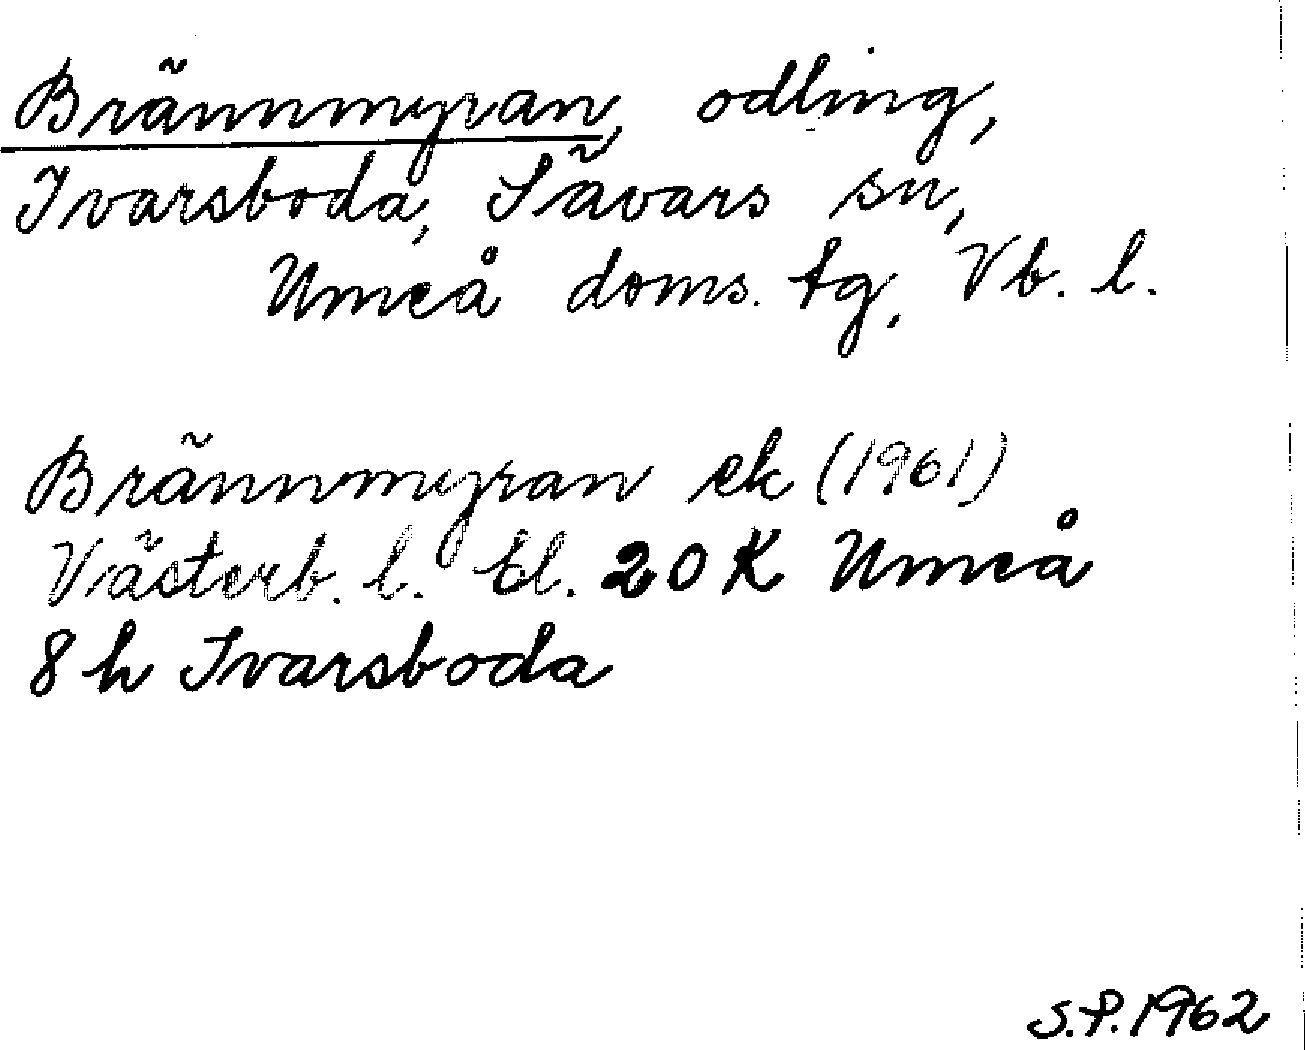 Brännmyran, odling,
Ivarsboda, Sävars sn,
Umeå doms. tg, Vb. l.
Brännmyran ek (1961)
Västerb. l. bl. 20 K Umeå
8 h Ivarsboda
S.P. 1962